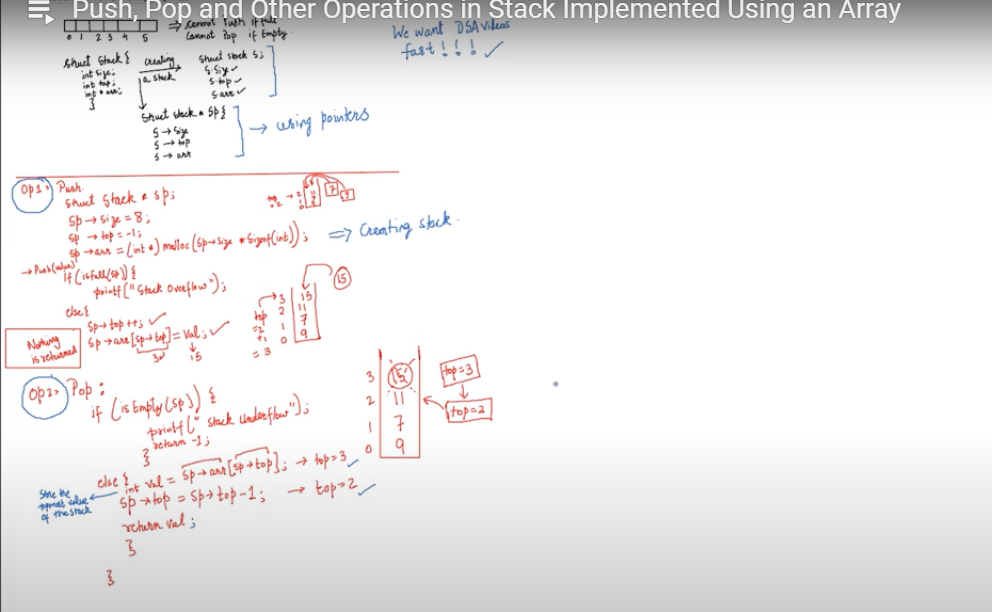 Push, Pop and Other Operations in Stack Implemented Using an Array
→ Cannot Push if Full
Cannot Pop if Empty
0 1 2 3 4 5
We want DSA videos
fast!!! ✓
struct stack {
int size;
int top;
int * arr;
}
creating
a stack
struct stack s;
s.size ✓
s.top ✓
s.arr ✓
struct stack * sp {
s → size
s → top
s → arr
→ using pointers
Op1 → Push
struct stack * sp;
sp → size = 8;
sp → top = -1;
sp → arr = (int *) malloc (sp→size * sizeof(int)); ⇒ Creating stack.
→ Push(value)
if (isfull(sp)) {
printf("Stack Overflow");
else {
sp → top ++; ✓
sp → arr[sp→top] = val; ✓
3 15
Nothing
is returned
15
top
=2
+1
= 3
3 15
2 11
1 7
0 9
Op2 → Pop :
if (isEmpty(sp)) {
printf("Stack Underflow");
return -1;
}
else {
int val = sp → arr[sp→top]; → top=3 ✓
sp → top = sp → top - 1; → top=2 ✓
return val ;
}
}
Store the
value
of the stack
3 15
2 11
1 7
0 9
top=3
top=2